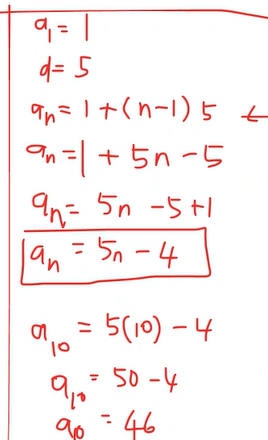 a₁ = 1
d = 5
aₙ = 1 + (n-1) 5 ←
aₙ = 1 + 5n - 5
aₙ = 5n - 5 + 1
aₙ = 5n - 4
a₁₀ = 5(10) - 4
a₁₀ = 50 - 4
a₁₀ = 46